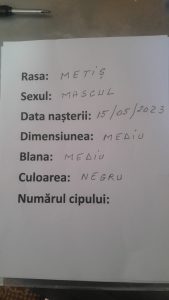 Rasa: METIȘ
Sexul: MASCUL
Data nașterii: 15/05/2023
Dimensiunea: MEDIU
Blana: MEDIU
Culoarea: NEGRU
Numărul cipului: